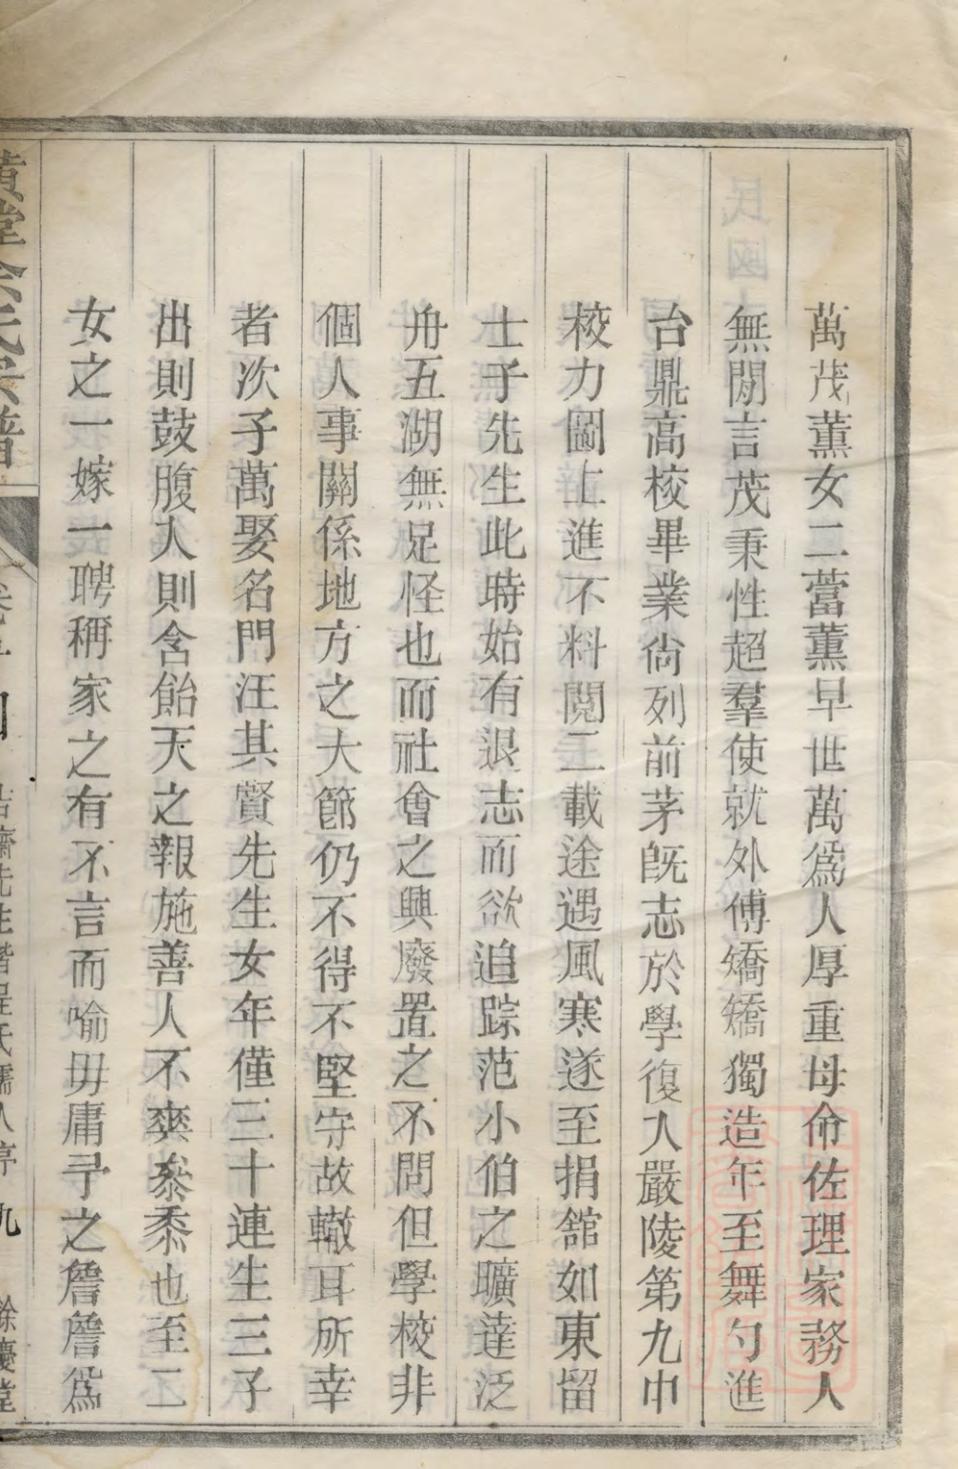 萬茂薰女二蕾薰早世萬爲人厚重母命佐理家務人
無閒言茂秉性超羣使就外傅矯矯獨造年至舞勺進
台鼎高校畢業尙列前茅旣志於學復入嚴陵第九中
校力圖上進不料閱二載途遇風寒遂至捐舘如東留
士子先生此時始有退志而欲追踪范小伯之曠達泛
舟五湖無足怪也而社會之興廢置之不問但學校非
個人事關係地方之大節仍不得不堅守故轍耳所幸
者次子萬娶名門汪其賢先生女年僅三十連生三子
出則鼓腹入則含飴天之報施善人不爽忝黍也至二
女之一嫁一聘稱家之有不言而喻毋庸予之詹詹爲
黃堂余氏宗譜 先生 程氏孺人序 九 餘慶堂